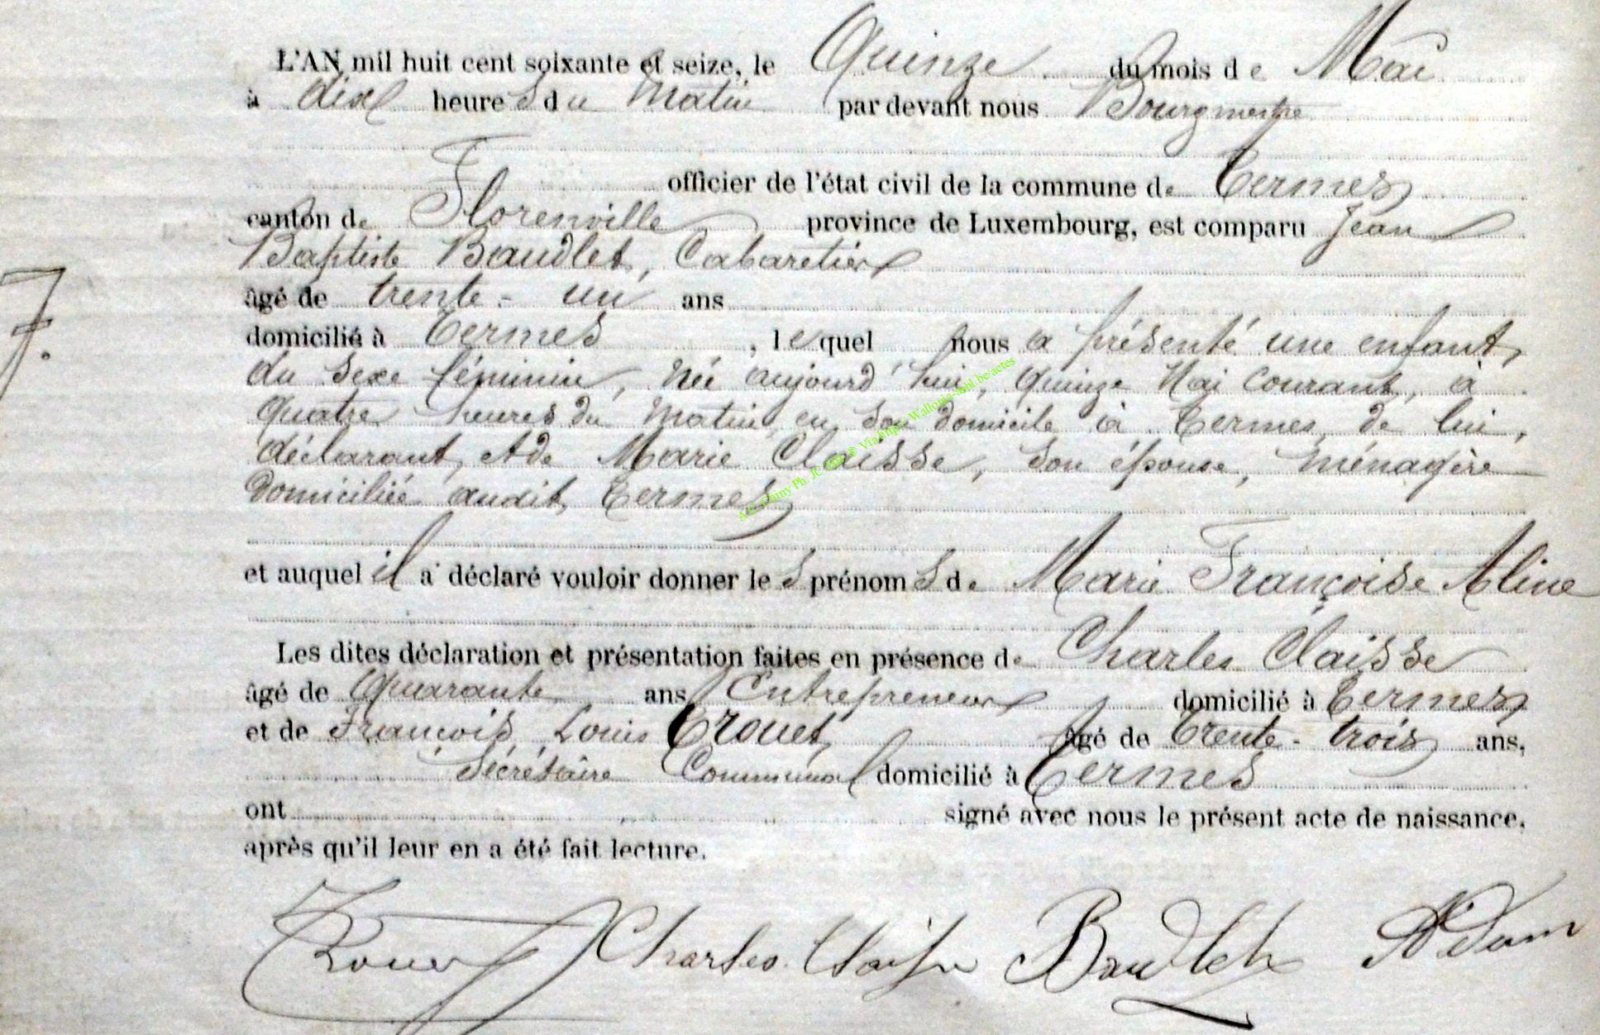 L'AN mil huit cent soixante et seize, le Quinze du mois de Mai
à dix heures du Matin par devant nous Bourgmestre
officier de l'état civil de la commune de Termes
canton de Florenville province de Luxembourg, est comparu Jean
Baptiste Baudlet, Cabaretier
âgé de trente-un ans
domicilié à Termes, lequel nous a présenté une enfant,
7.
du sexe féminin, née aujourd'hui, quinze Mai courant, à
quatre heures du matin en son domicile à Termes, de lui,
déclarant, et de Marie Claisse, son épouse, ménagère
domiciliée audit Termes
et auquel il a déclaré vouloir donner les prénoms de Marie Françoise Aline
Les dites déclaration et présentation faites en présence de Charles Claisse
âgé de Quarante ans, Entrepreneur domicilié à Termes
et de François Louis Trouet âgé de trente-trois ans,
Sécrétaire Communal domicilié à Termes
ont signé avec nous le présent acte de naissance,
après qu'il leur en a été fait lecture.
Trouet Charles Claisse Baudlet Adam